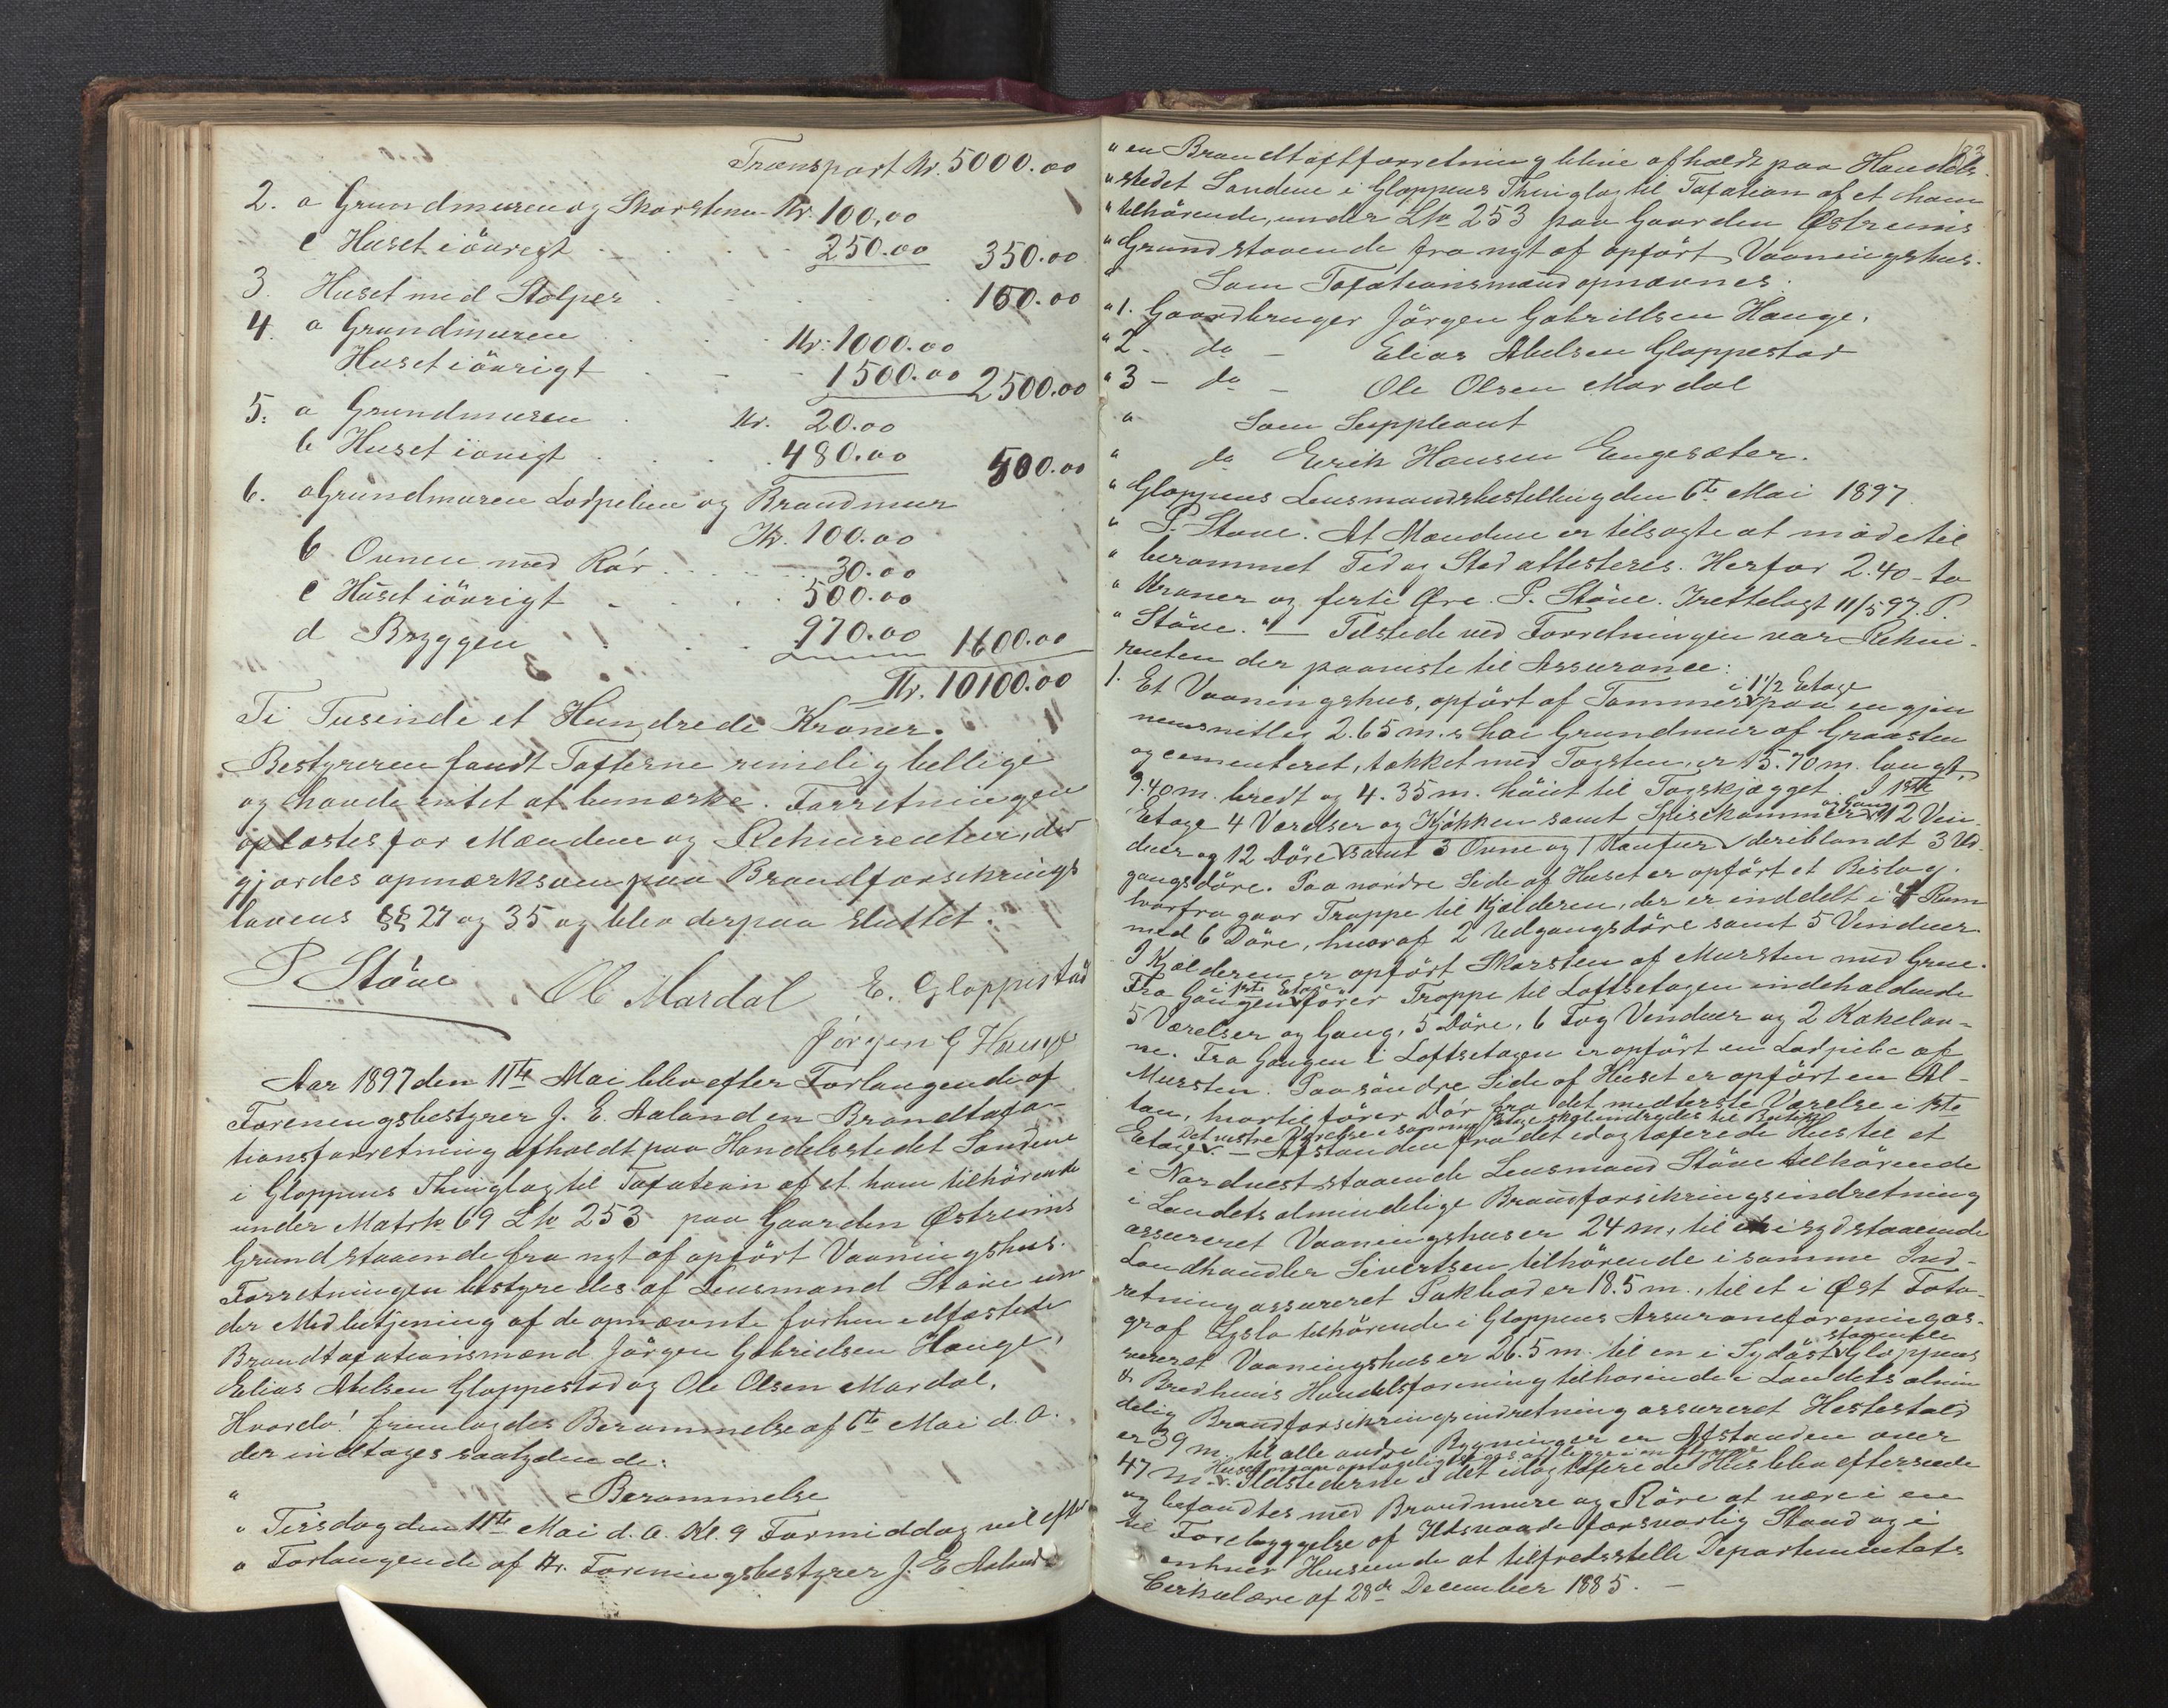 Transport Kr. 5000.00
2. a Grundmuren og Skorstenen Kr. 100,00
c Huset iöuregt 250.00 350.00
3. Huset med Stolper 150.00
4. a Grundmuren Kr. 1000.00
Huset iöurigt 1500.00 2500.00
5. a Grundmuren Kr. 20.00
b Huset iöurigt 480.00 500.00
6. a Grundmuren Lodpiben og Brandmur
Kr. 100.00
b Ovnen med Rör 30.00
c Huset iöurigt 500.00
d Bryggen 970.00 1600.00
Kr. 10100.00
Ti Tusinde et Hundrede Kroner.
Bestyreren fandt Taxterne rimelig billige
og havde intet at bemærke. Forretningen
oplæstes for Mændene og Rekvirenten, der
gjordes opmærksom paa Brandforsikrings
lovens §§ 27 og 35 og blev derpaa sluttet.
P Stöve Ol Mardal E. Gloppestad
Jörgen G Hauge
Aar 1897 den 11te Mai blev efter Forlangende af
Foreningsbestyrer J. E. Aaland en Brandtaxa-
tionsforretning afholdt paa Handelsstedet Sandene
i Gloppens Thinglag til Taxation af et ham tilhörende
under Matrk 69 Lb 253 paa Gaarden Østreims
Grund staaende fra nyt af opfört Vaaningshus.
Forretningen bestyredes af Lensmand Stöve un
der Medbetjening af de opnævnte forhen edfæstede
Brandtaxationsmænd Jörgen Gabrielsen Hauge,
Elias Abelsen Gloppestad og Ole Olsen Mardal.
Hvorda! fremlagdes Berammelse af 6te Mai d. A.
der indtages saalydende:
" Berammelse
" Tirsdag den 11te Mai d. A. Kl. 9 Formiddag vil efter
" Forlangende af Hr. Foreningsbestyrer J. E Aaland
183
" en Brandtaxtforretning blive afholdt paa Handels-
" stedet Sandene i Gloppens Thinglag til Taxation af et ham
" tilhörende, under Lb 253 paa Gaarden Østreims
" Grund staaende fra nyt af opfört Vaaningshus.
" Som Taxationsmænd opnævnes:
" 1. Gaardbruger Jörgen Gabrillsen Hauge.
" 2 - do - Elias Abelsen Gloppestad
" 3 - do - Ole Olsen Mardal
" Som Suppleant
" do Eerik Hansen Eugesæter.
" Gloppens Lensmandsbestilling den 6te Mai 1897.
" P. Stöve. At Mændene er tilsagte at möde til
" berammet Tid og Sted attesteres. Herfor 2.40 - to
" Kroner og firti Øre. P. Stöve. Irettelagt 11/5 97. P.
" Stöve." - Tilstede ved Forretningen var Rekvi-
renten der paaviste til Assurance:
1. Et Vaaningshus, opfört af Tömmer i 1 1/2 Etage paa en gjen
nemsnitlig 2.65 m.s höi Grundmur af Graasten
og cementeret, tækket med Tagsten, er 15.70 m. langt,
9.40 m. bredt og 4.35 m. höiet til Tagskjægget. I 1ste
Etage 4 Værelser og Kjökken samt Spisekammer og Gang 12 Vin-
duer og 12 Döre samt 3 Ovne og 1 Komfur deriblandt 3 Ud
gangsdöre. Paa nordre Side af Huset er opfört et Bislag.
hvorfra gaar Trappe til Kjælderen, der er inddelt i 4 Rum
med 6 Döre, hvoraf 2 Udgangsdöre samt 5 Vinduer
I Kjælderen er opfört Skorsten af Mursten med Grue.
Fra Gangen i 1ste Etage förer Trappe til Loftsetagen indeholdende
5 Værelser og Gang, 5 Döre, 6 Fag Vinduer og 2 Kakelov-
ne. Fra Gangen i Loftsetagen er opfört en Lodpibe af
Mursten. Paa söndre Side af Huset er opfört en Al-
tan, hvortil förer Dör fra det mellerste Værelse i 1ste
Etage. Det vestre Værelse i samme Etage skal indrydes til Butikk - Afstanden fra det idag taxerede Hus til et
i Nordvest staaende Lensmand Stöve tilhörende
i Landets almindelige Brandforsikringsindretning
assureret Vaaningshus er 24 m, til et i Syd staaende
Landhandler Sivertsen tilhörende i samme Ind-
retning assureret Pakbod er 18.5 m., til et i Øst Foto-
graf Lyslo tilhörende i Gloppens Assuranceforening as-
sureret Vaaningshus er 26.5 m. til en i Sydöst staaende Gloppens
& Bredheims Handelsforening tilhörende i Landets almin
delig Brandforsikringsindretning assureret Hestestald
er 39 m. til alle andre Bygninger er Afstanden over
47 m. Ildstederne i det idag taxerede Hus blev efterseede
og befandtes med Brandmure og Röre at være i en
til Forebyggelse af Ildsvaade forsvarlig Stand og i
enhver Henseende at tilfredsstille Departementets
Cirkulære af 28de December 1885. -